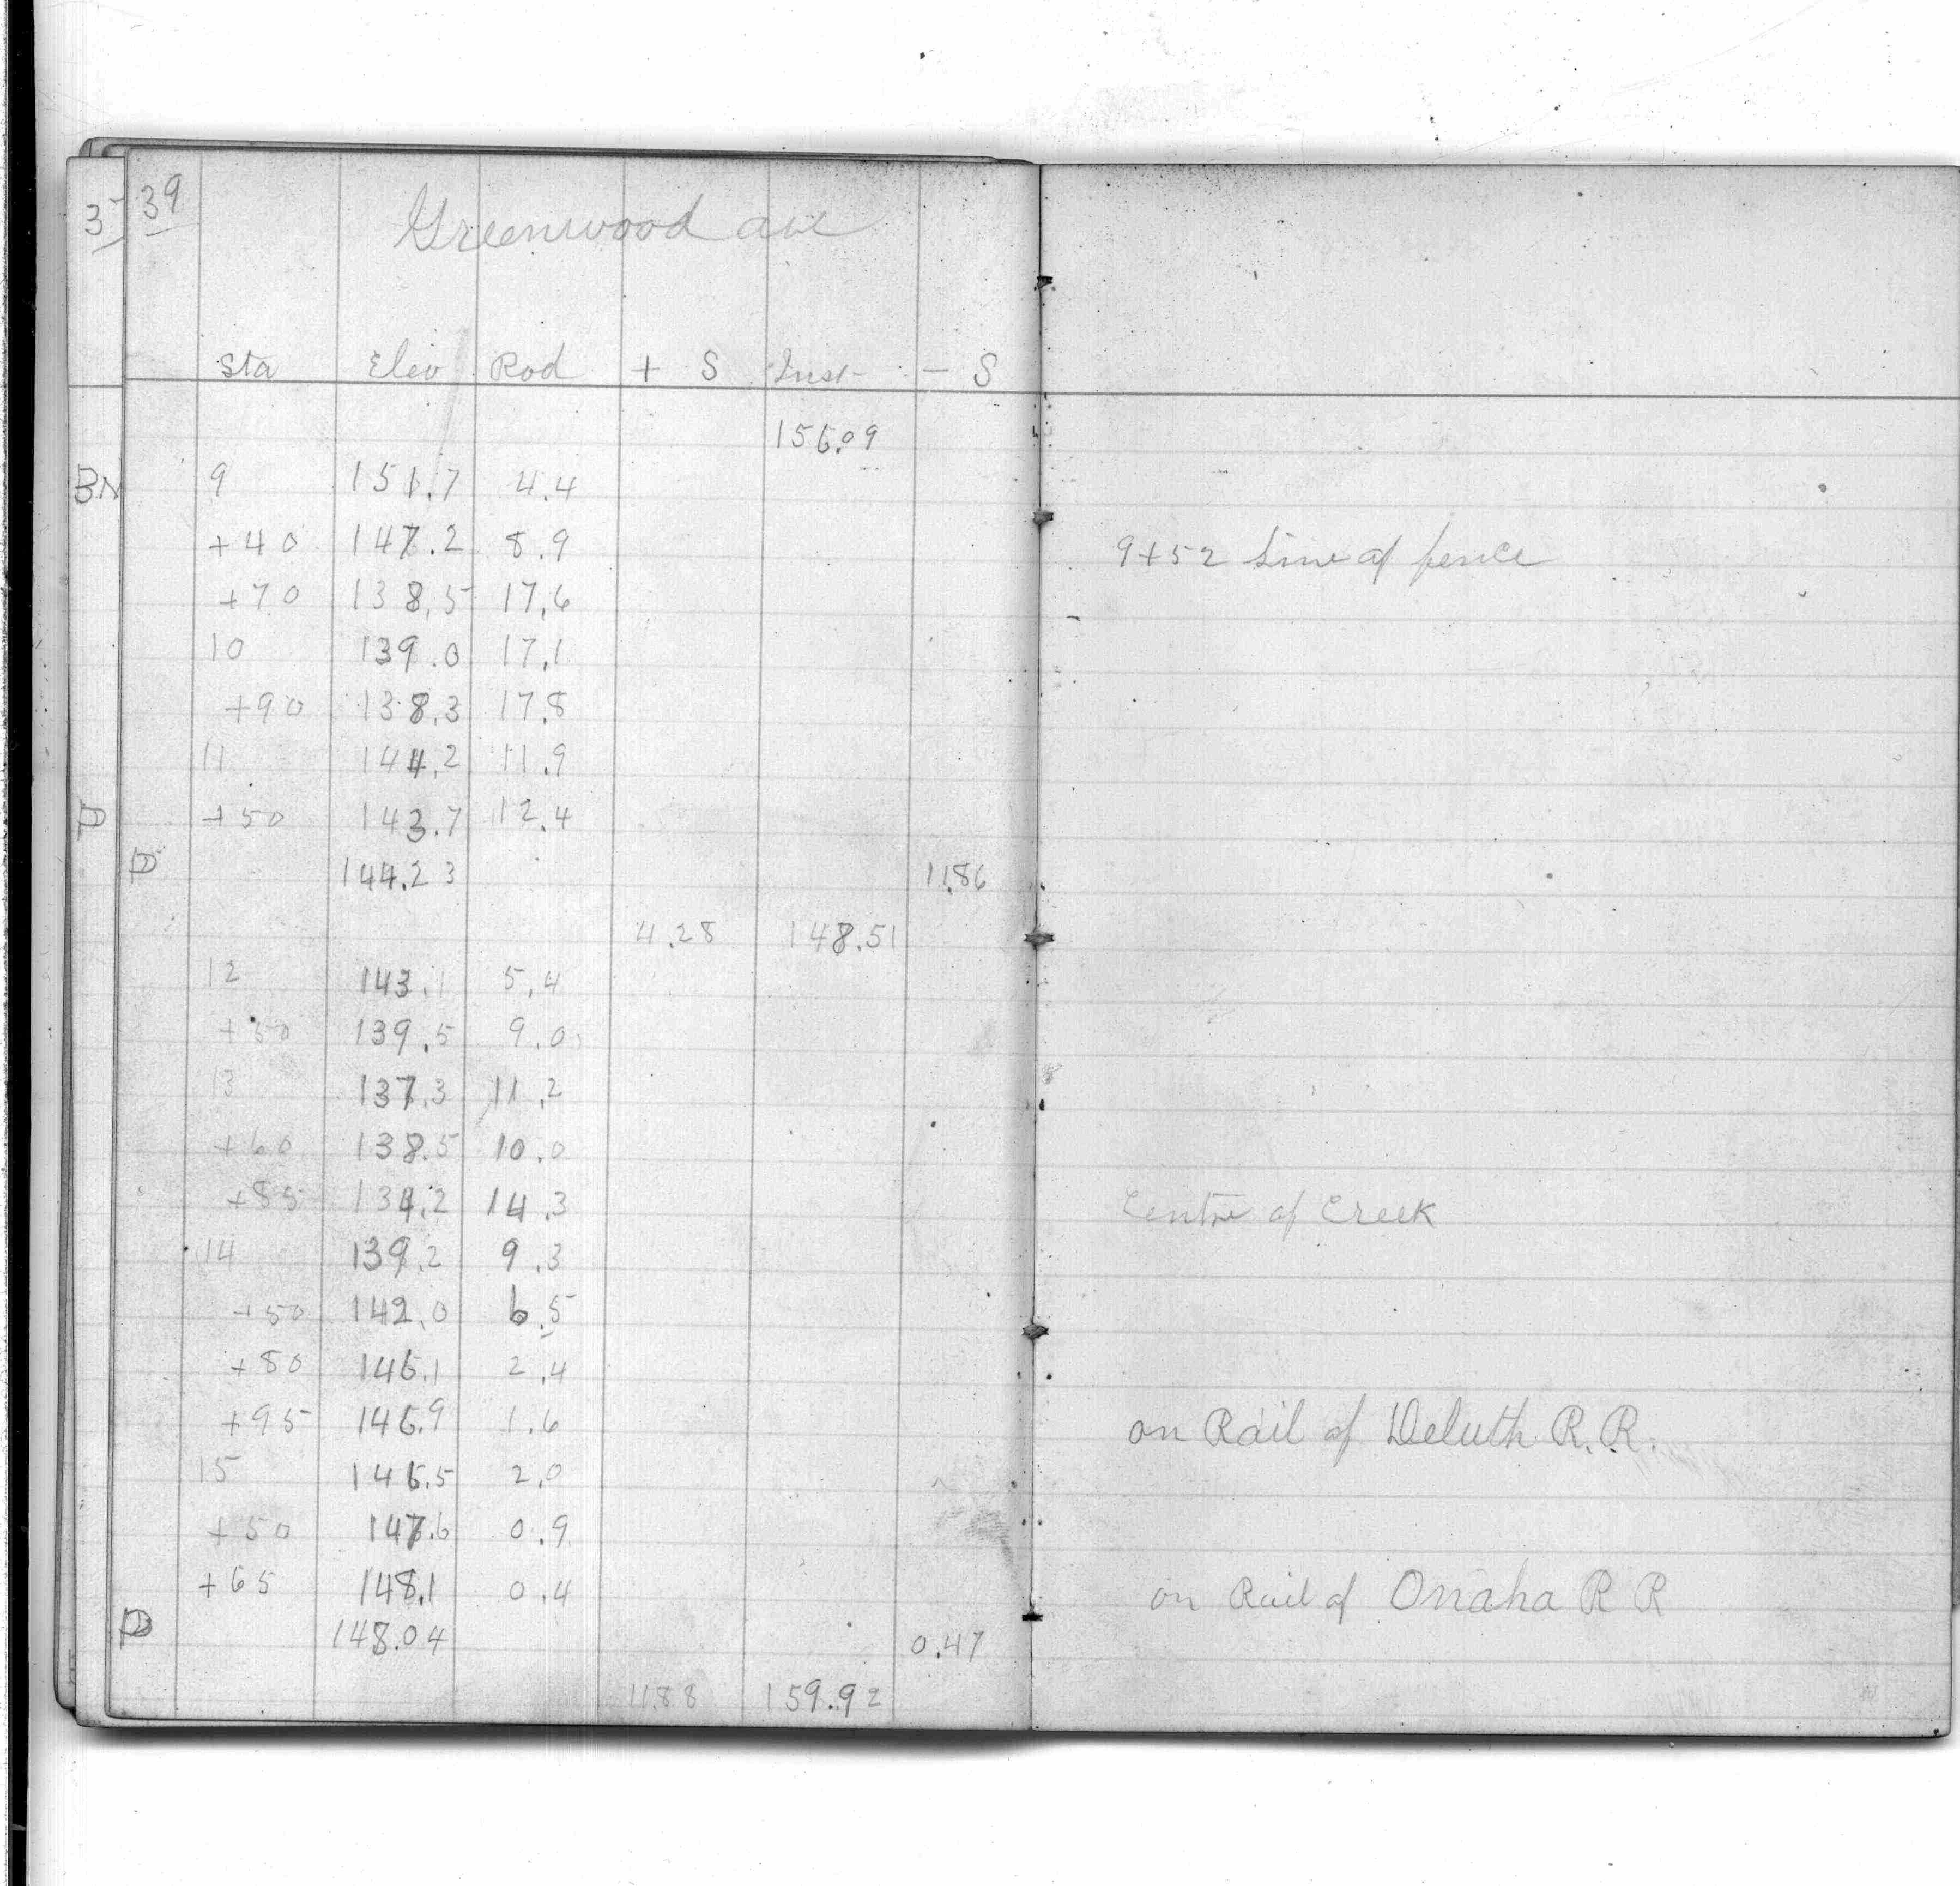 35 39 Greenwood ave
Sta Elev Rod + S Inst - S
156.09
BM 9 151.7 4.4
+40 147.2 8.9 9+52 Line of fence
+70 138.5 17.6
10 139.0 17.1
+90 138.3 17.8
11 144.2 11.9
+50 143.7 12.4
144.23 11.86
4.28 148.51
12 143.1 5.4
+50 139.5 9.0
13 137.3 11.2
+60 138.5 10.0
+85 134.2 14.3 Centre of Creek
14 139.2 9.3
+50 142.0 6.5
+80 146.1 2.4
+95 146.9 1.6 on Rail of Deluth R.R.
15 146.5 2.0
+50 147.6 0.9
+65 148.1 0.4 on Rail of Omaha R R
148.04 0.47
11.88 159.92